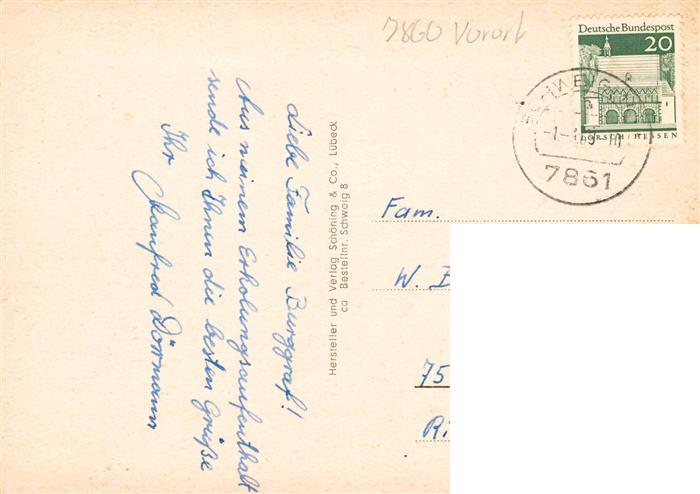 7860 Vorort
Deutsche Bundespost
20
LORSCH/HESSEN
7861
Liebe Familie Burggraf!
Aus meinem Erholungsaufenthalt
sende ich Ihnen die besten Grüße
Ihr
Manfred Dörmann
Hersteller und Verlag Schöning & Co., Lübeck
ca Bestellnr. Schwaig 8
Fam.
W. B
75
Ri